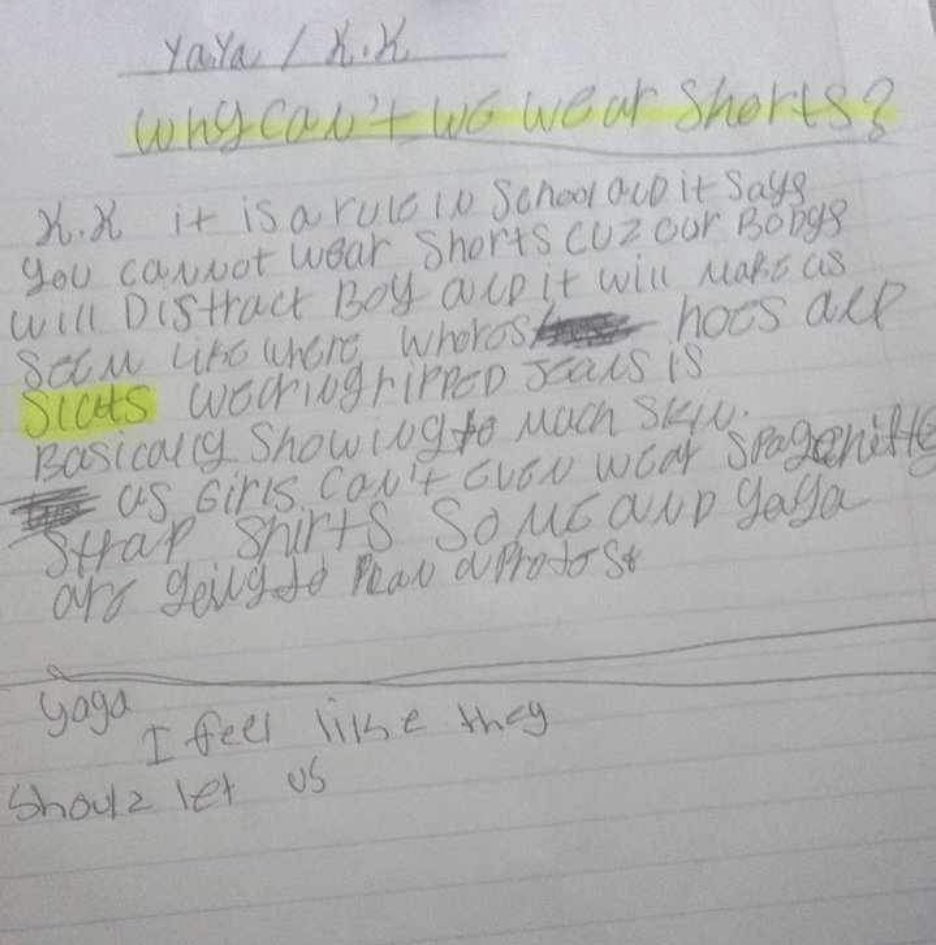 YaYa / K.K
Why Can't we wear Shorts?
K.K it is a rule in School and it Says
you cannot wear Shorts cuz our Bodys
will Distract Boy and it will make us
Seem like where whores hoes and
Sluts wearing ripped Jeans is
Basically Showing to much Skin.
us Girls can't even wear Spagenitte
Strap Shirts So me and yaya
are going to Plan a Protest
yaya
I feel like they
Should let us